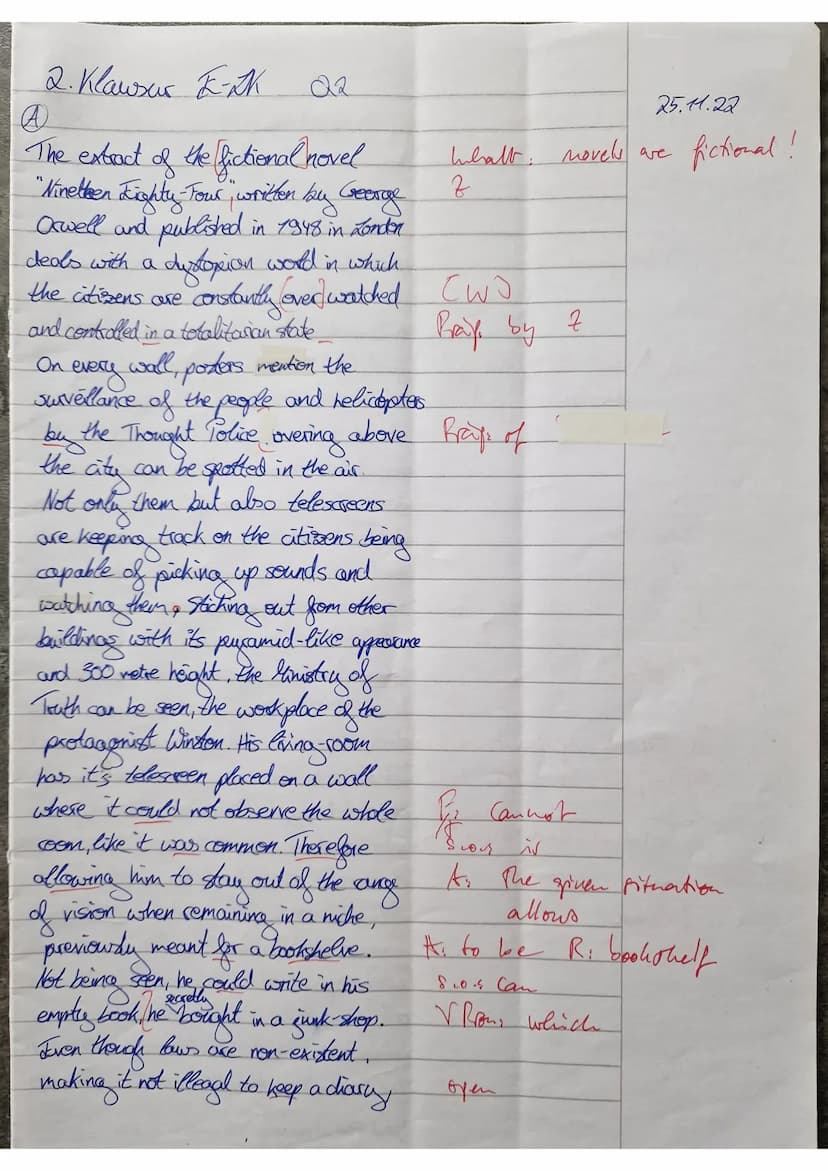 2. Klausur E-LK Q2
25.11.22
A
The extract of the [fictional] novel novels are fictional!
"Nineteen Eighty-Four", written by George Z
Orwell and published in 1948 in London
deals with a dystopian world in which
the citizens are constantly [over]watched (W)
and controlled in a totalitarian state by Z
On every wall, posters mention the
surveillance of the people and helicopters
by the Thought Police overing above of
the city can be spotted in the air.
Not only them but also telescreens
are keeping track on the citizens being
capable of picking up sounds and
watching them. Sticking out from other
buildings with its pyramid-like appearance
and 300 metre height, the Ministry of
Truth can be seen, the workplace of the
protaagnist Winston. His living-room
has it's telescreen placed on a wall
where it could not observe the whole cannot
room, like it was common. Therefore s.o.s is
allowing him to stay out of the range A: The given situation
of vision when remaining in a niche, allows
previously meant for a bookshelve. A: to be R: bookshelf
Not being seen, he could write in his s.o.s can
empty book, he secretly bought in a junk-shop. which
Even though laws are non-existent,
making it not illegal to keep a diary,